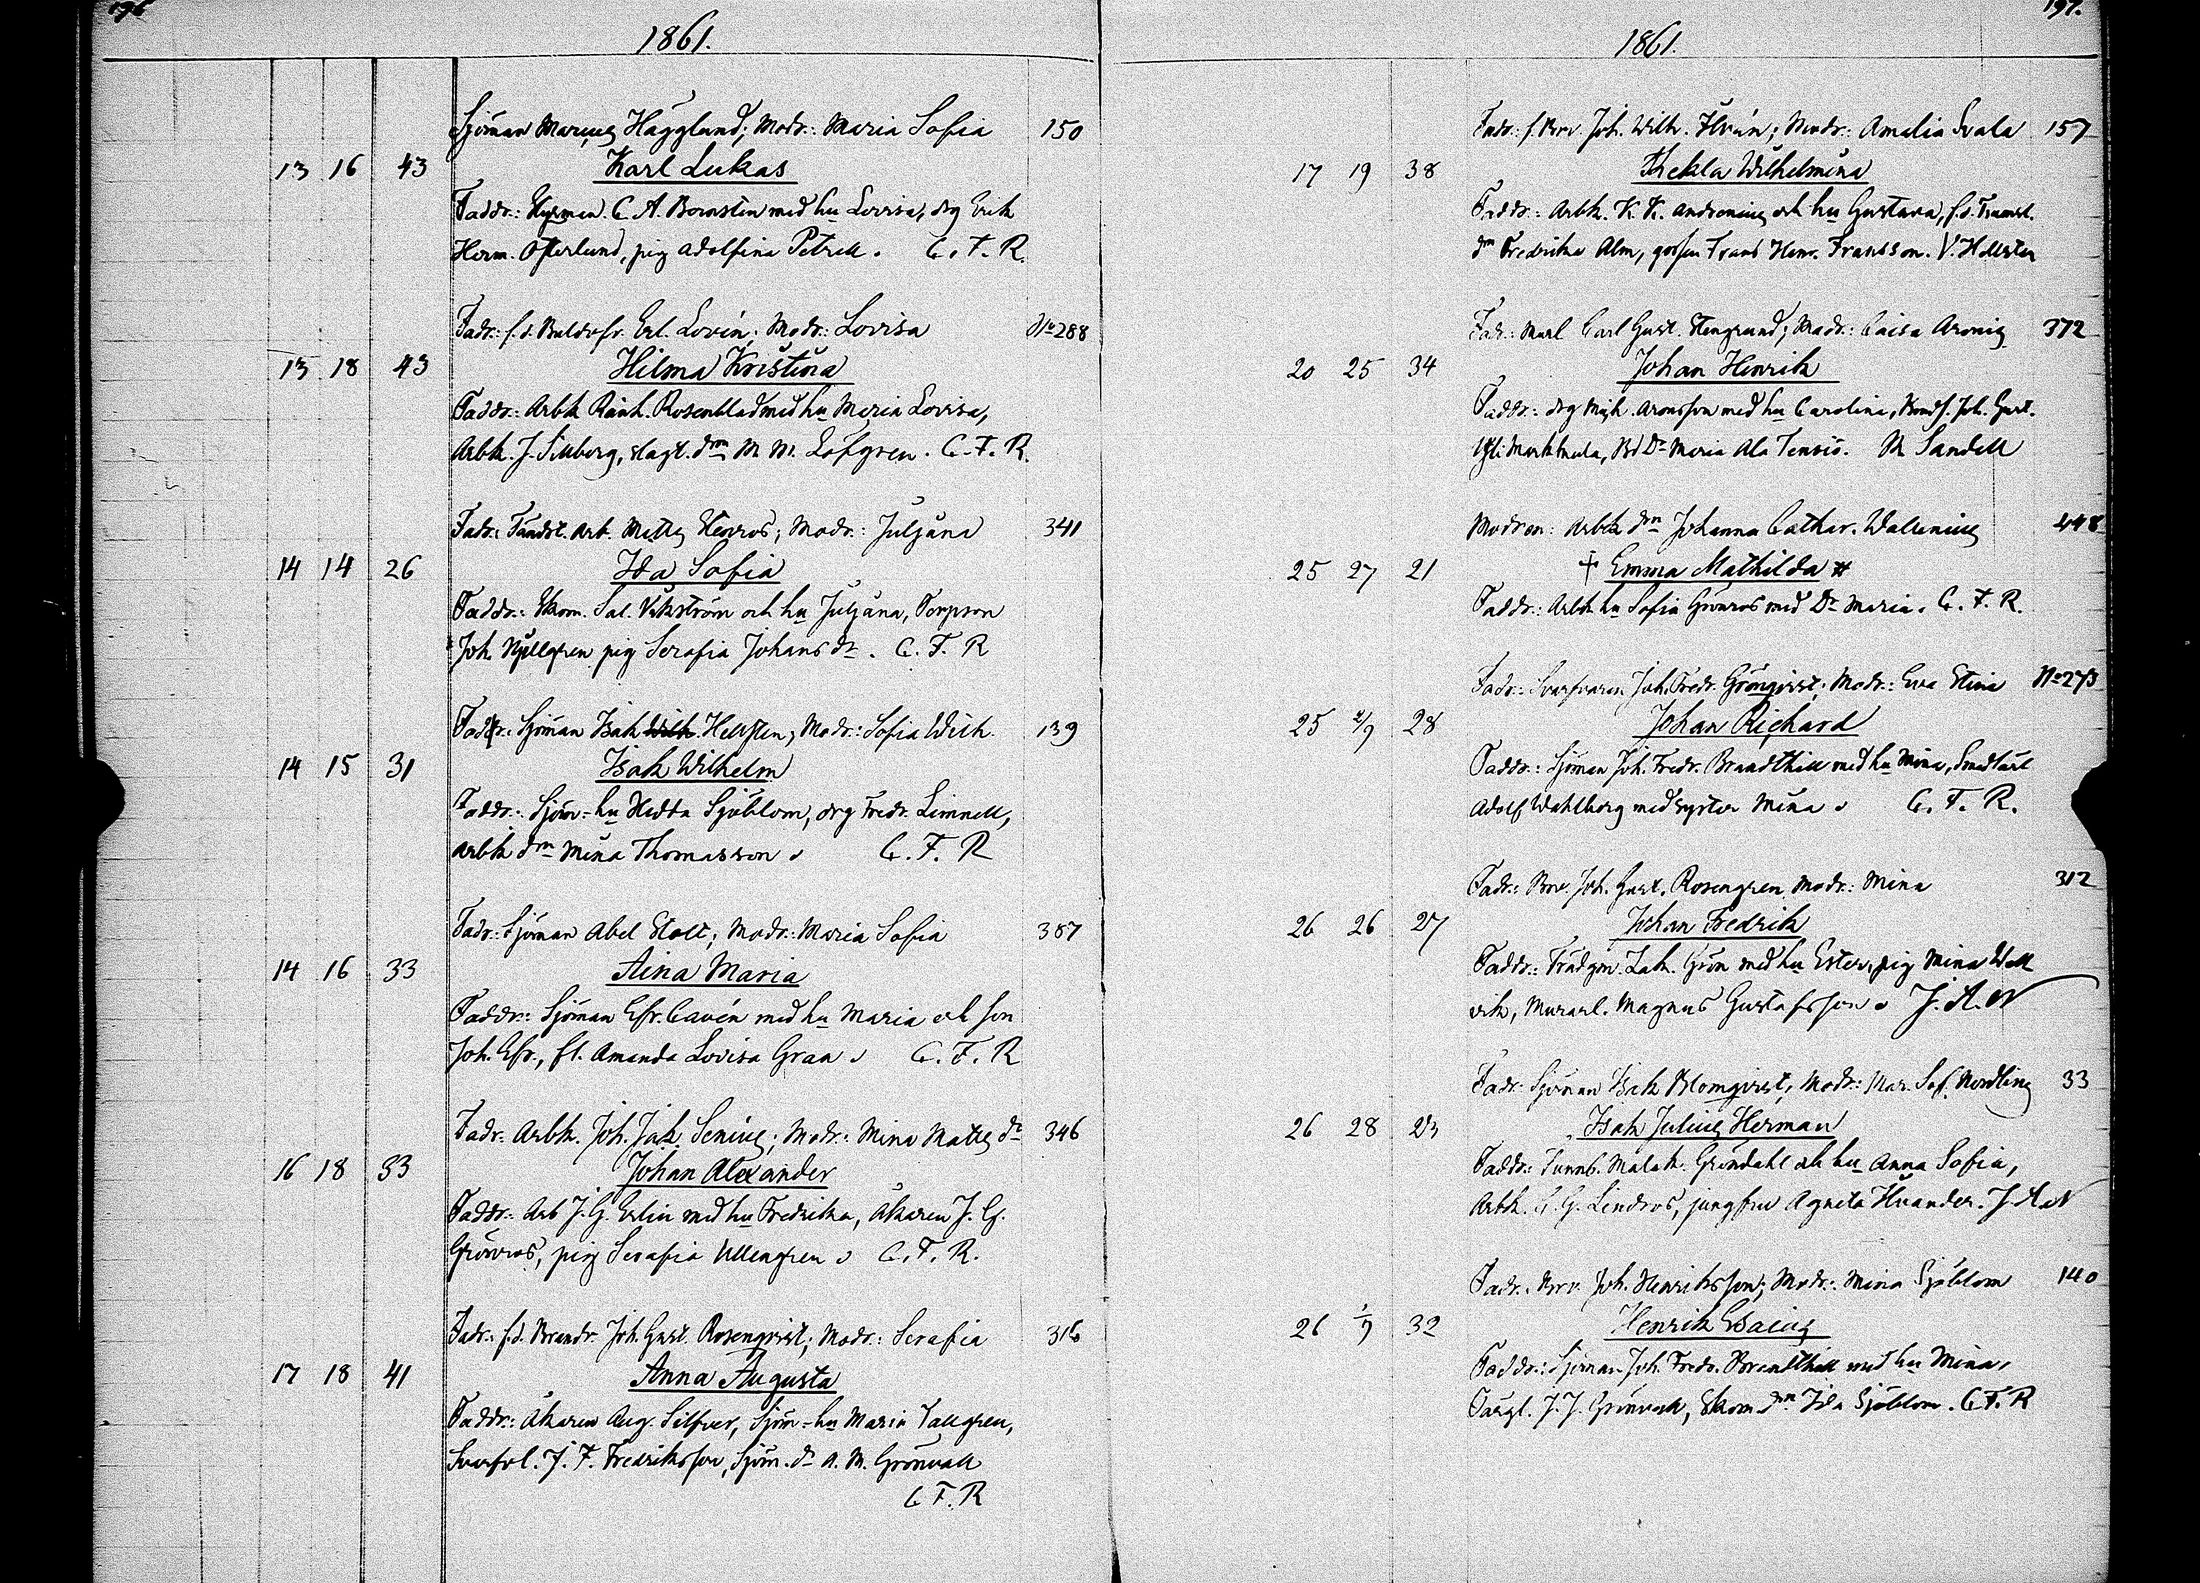 196
1861.
Sjöman Marcus Hägglund; Modr.: Maria Sofia 150
13 16 43 Karl Lukas
Faddr.: Hyrman C. A. Bornsten med hu Lovisa, drg Erik
Herm. Österlund, pig Adolfina Petrell. C. F. R.
Fadr.: f. d. Erl. Lovén; Modr.: Lovisa No 288
13 18 43 Hilma Kristina
Faddr.: Arbk Rosenblad med hu Maria Lovisa,
Arbk. J. Siuberg, slagt. drn M. M. Löfgren. C. F. R.
Fadr.: Arb. Matts Henros; Modr.: Juljana 341
14 14 26 Ida Sofia
Faddr.: Skom. Sal. Vikström och hu Juljana, Torpson
Joh. pig Serafia Johans dr. C. F. R
Fadr.: Sjöman Isak Wilh. Hellsten; Modr.: Sofia Wilh. 139
14 15 31 Isak Wilhelm
Faddr.: Sjöm-hu Hedda Sjöblom, drg Fredr. Limnell,
arbk drn Mina Thomasson. C. F. R
Fadr.: Sjöman Abel Stolt; Modr.: Maria Sofia 387
14 16 33 Aina Maria
Faddr.: Sjöman Efr. Cavén med hu Maria och son
Joh. Efr., fl. Amanda Lovisa Gran. C. F. R
Fadr. Arbk. Joh. Jak. Senius; Modr.: Mina Matts dr 346
16 18 33 Johan Alexander
Faddr.: Arb J. G. Erlin med hu Fredrika, Åkaren J. G.
Grönros, pig Serafia Ullengren. C. F. R.
Fadr.: f. d. Brandv. Joh. Gust. Rosenqvist; Modr.: Serafia 316
17 18 41 Anna Augusta
Faddr.: Åkaren Aug. Silfver, Sjöm-hu Maria Tallgren,
Svarfvl. J. F. Fredriksson, Sjöm. dr A. M. Grönvall
C F. R
197.
1861.
Fadr.: f. Brv. Joh. Wilh. Modr.: Amalia Svala 157
17 19 38 Thekla Wilhelmina
Faddr.: Arbk. K. K. Andronius och hu Gustava, f. d.
drn Fredrika Alm, gossen Frans Henr. Fransson. V. Hellsten
Fadr.: Murl Carl Gust. Stengrund; Modr.: Caisa Aronis 372
20 25 34 Johan Henrik
Faddr.: drg Mich. Aronsson med hu Carolina, Joh. Gust.
Maria Ala Tensis. M Sandell
Modren: Arbk drn Johanna Cathar. Wallenius 448
25 27 21 † Emma Mathilda #
Faddr.: Arbk hu Sofia Grönros med Dr Maria. C. F. R.
Fadr.: Svarfvaren Joh. Fredr. Grönqvist; Modr.: Eva Stina No 273
25 2/9 28 Johan Richard
Faddr.: Sjöman Joh. Fredr. Brandthill med hu Mina,
Adolf Wahlberg med syster Mina. C. F. R.
Fadr.: Brv. Joh. Gust. Rosengren Modr.: Mina 312
26 26 27 Johan Fredrik
Faddr.: Trädgm. Zak. Grön med hu Ester, pig Mina Well
vik, Murarl. Magnus Gustafsson. J. A. N
Fadr.: Sjöman Isak Blomqvist; Modr.: Mar. Sof. Nordling 33
26 28 23 Isak Julius Herman
Faddr.: Tunnb. Malak. Gröndahl och hu Anna Sofia,
Arbk. G. G. Lindros, jungfru Agneta Thuander. J A N
Fadr.: Brv. Joh. Henriksson; Modr.: Mina Sjöblom 140
26 1/9 32 Henrik Esaias
Faddr.: Sjöman Joh. Fredr. Brandthill med hu Mina,
Färgl. J. J. Grönvall, Skom. drn Ida Sjöblom. C F. R